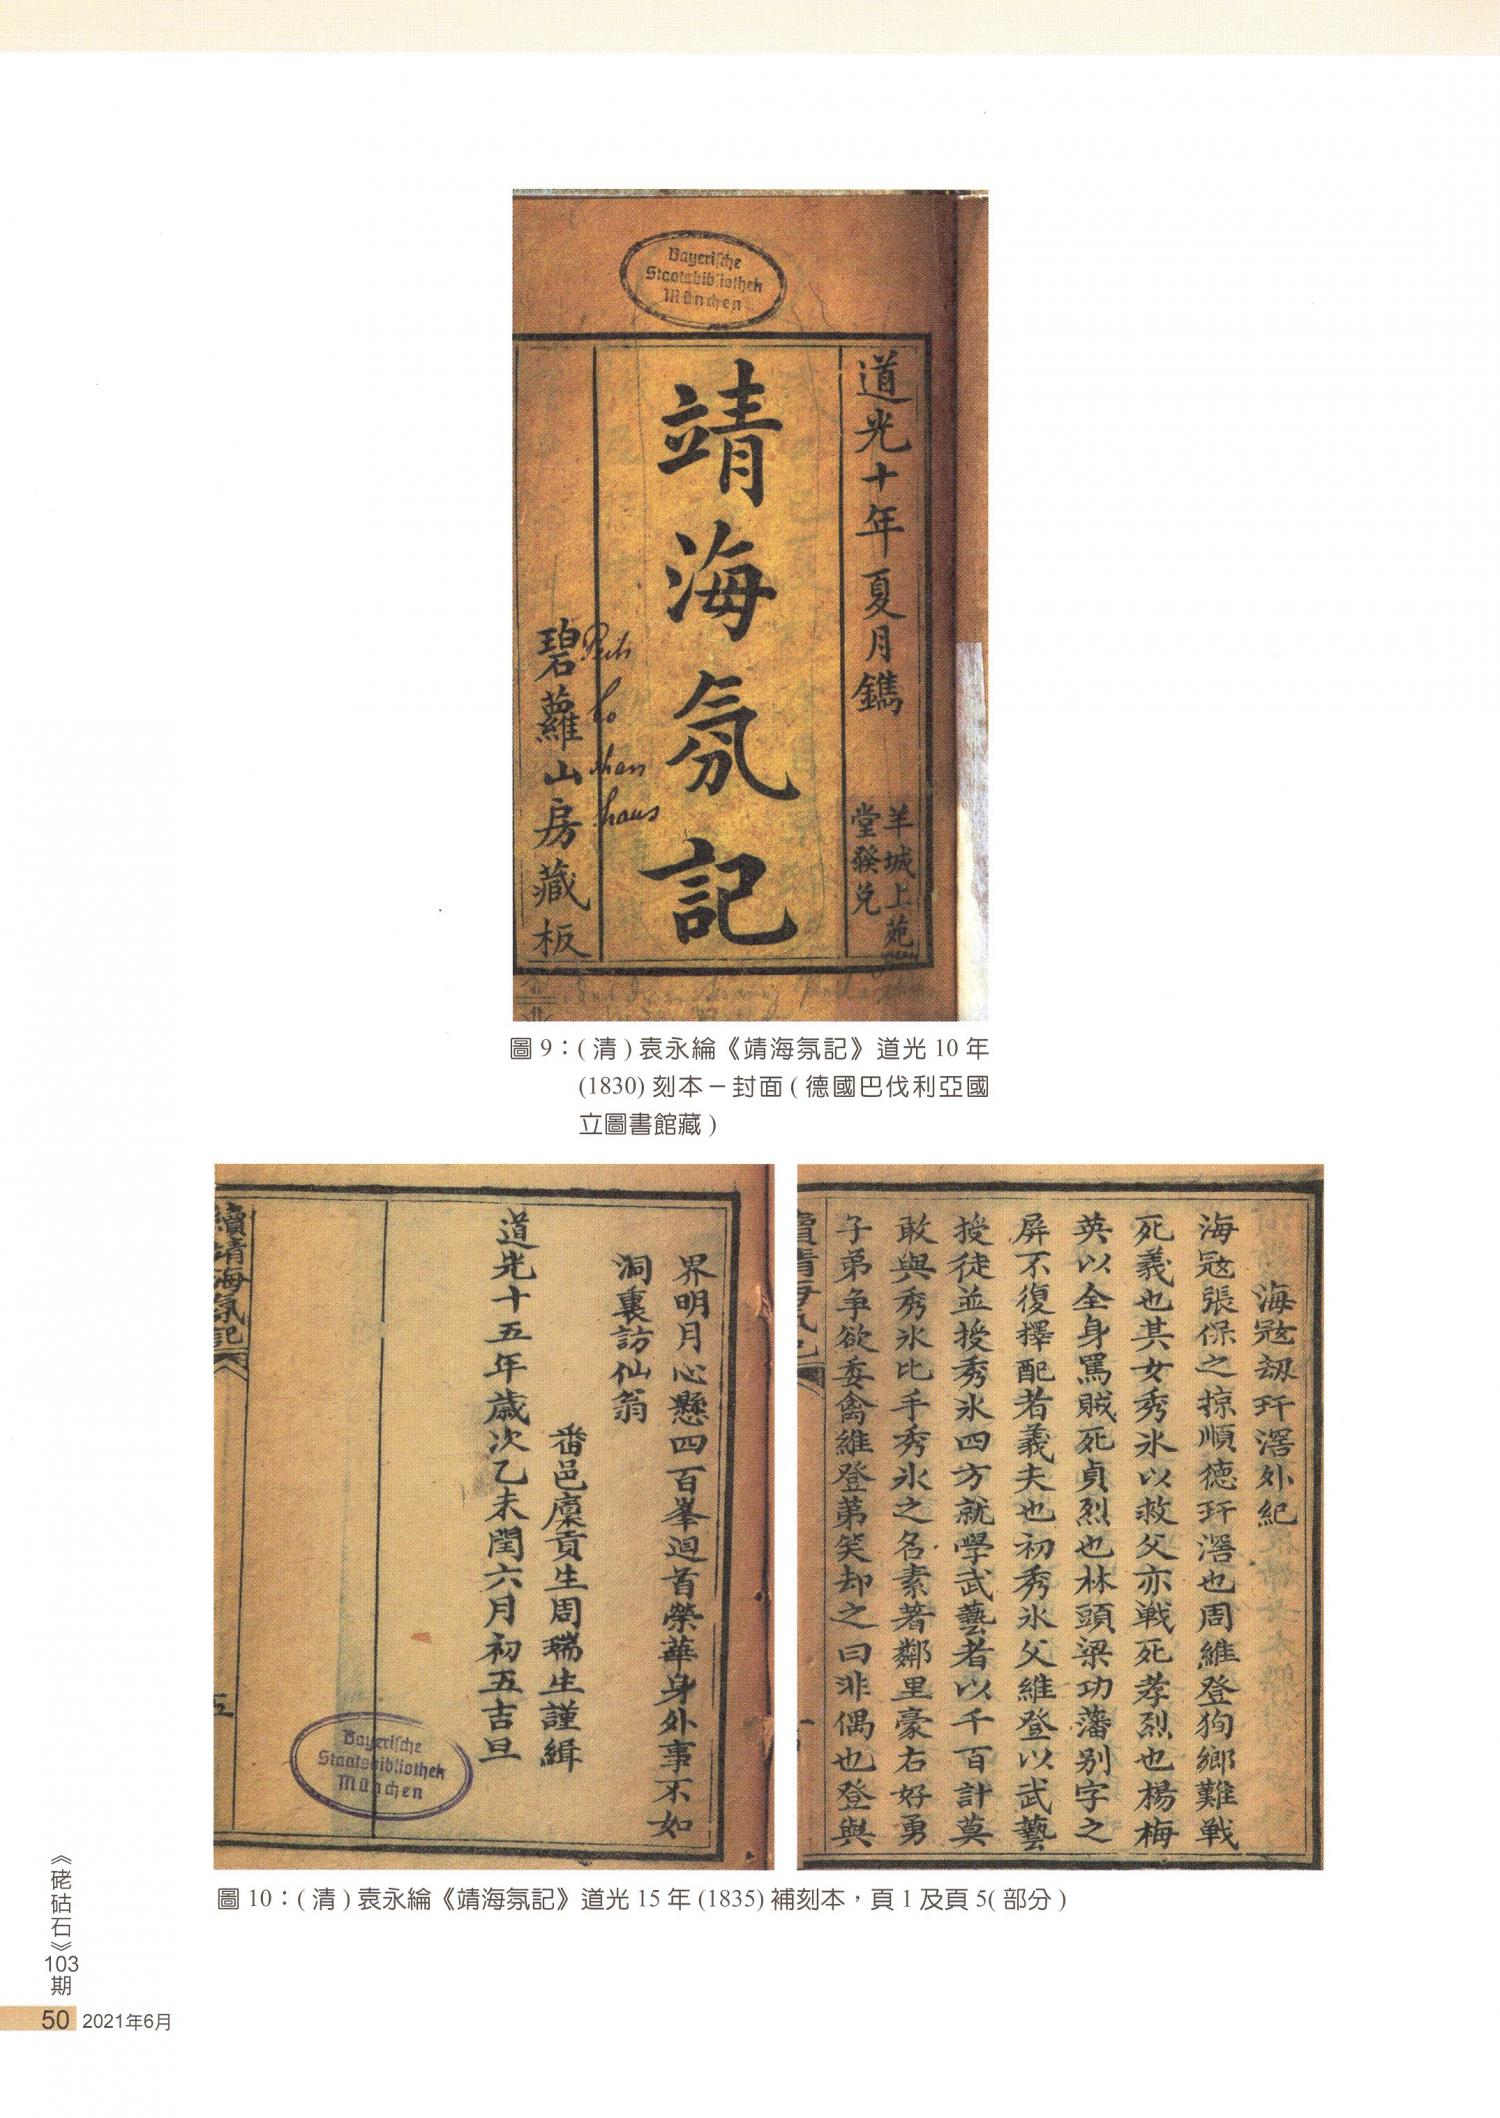 Bayerische
Staatsbibliothek
München
道光十年夏月鐫
羊城上苑
堂發兌
靖海氛記
碧蘿山房藏板
圖 9：( 清 ) 袁永綸《靖海氛記》道光 10 年
(1830) 刻本－封面 ( 德國巴伐利亞國
立圖書館藏 )
海冦刼玕滘外紀
海冦張保之掠順德玕滘也周維登狥鄉難戰
死義也其女秀氷以救父亦戰死孝烈也楊梅
英以全身罵賊死貞烈也林頭梁功藩别字之
屏不復擇配者義夫也初秀氷父維登以武藝
授徒並授秀氷四方就學武藝者以千百計莫
敢與秀氷比手秀氷之名素著鄰里豪右好勇
子弟争欲委禽維登第笑却之曰非偶也登與
界明月心懸四百峯迴首榮華身外事不如
洞裏訪仙翁
番邑廩貢生周瑞生謹緝
道光十五年歲次乙未閏六月初五吉旦
續靖海氛記
五
Bayerische
Staatsbibliothek
München
圖 10：( 清 ) 袁永綸《靖海氛記》道光 15 年 (1835) 補刻本，頁 1 及頁 5( 部分 )
《硓𥑮石》103期
50 2021年6月